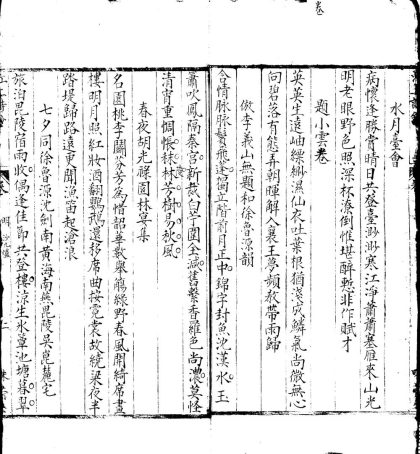 水月臺會
病懷逢勝賞晴日共登臺渺渺寒江淨蕭蕭塞雁來山光
明老眼野色照深杯潦倒惟堪醉慙非作賦才
題小雲卷
英英生遠岫縹緲濕仙衣吐葉根猶淺成鱗氣尚微無心
向碧落有態弄朝暉解入襄王夢頻教帶雨歸
倣李義山無題和徐魯源韻
含情脉脉鬢飛蓬獨立階前月正中錦字封魚池漢水玉
簫吹鳳隔秦宮新裁白苧團全滅舊繫香羅色尚濃莫怪
清宵重惆悵芳樹易秋風
春夜胡光祿園林草集
名園桃李關芬芳為惜韶華數舉觴綠野春風開綺席畫
樓明月照紅妝酒翻鸚鵡還移席曲按霓裳故繞梁夜半
踏堤歸路遠更聞漁笛起滄浪
七夕同徐魯源沈劍南黃海南無毘陵吳崑麓宅
旅泊毘陵宿雨收偶逢佳節共登樓涼生水草池塘暮翠